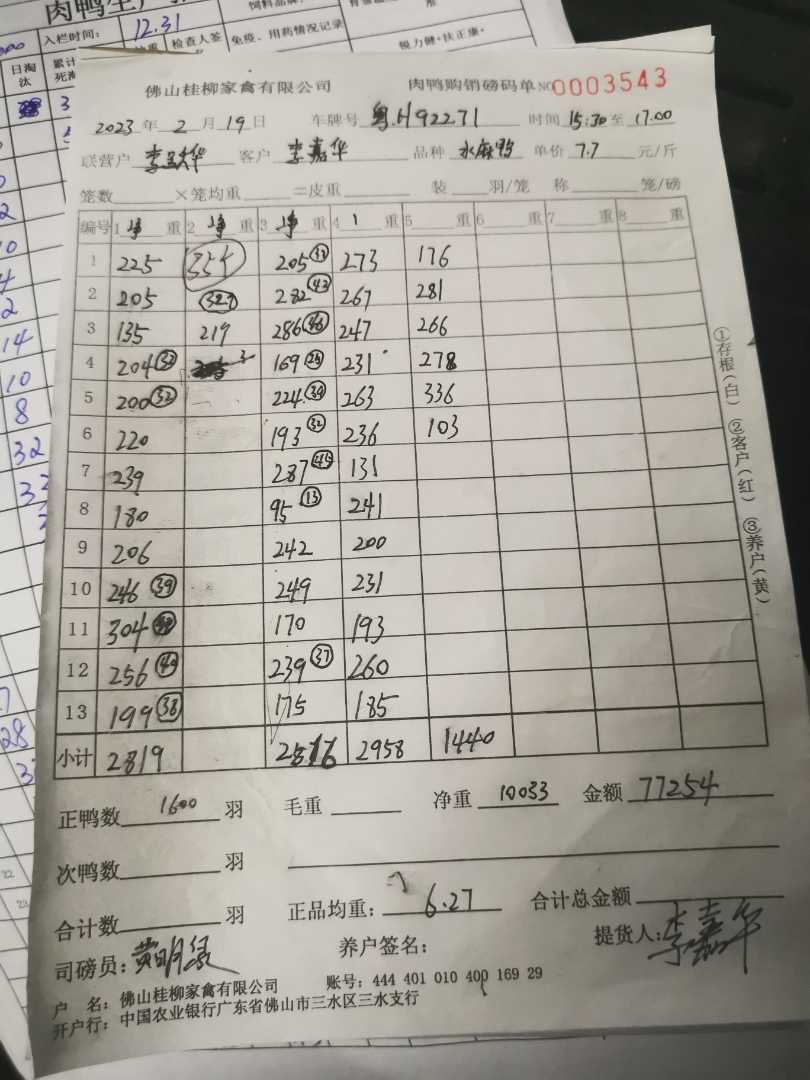 入栏时间: 12.31
检查人签
免疫、用药情况记录
锐力健·扶正康·
日淘汰
佛山桂柳家禽有限公司 肉鸭购销磅码单 NO 0003543
2023 年 2 月 19 日 车牌号 粤H92271 时间 15:30 至 17:00
联营户 客户 李嘉华 品种 水麻鸭 单价 7.7 元/斤
笼数 ×笼均重 =皮重 装 羽/笼 称 笼/磅
编号 1 净 重 2 净 重 3 净 重 4 重 5 重 6 重 7 重 8 重
1 225 354 205 273 176
2 205 327 282 43 267 281
3 135 219 286 46 247 266
4 204 169 231 278
5 200 32 224 39 263 336
6 220 193 32 236 103
7 239 287 45 131
8 180 95 13 241
9 206 242 200
10 246 39 249 231
11 304 170 193
12 256 239 37 260
13 199 38 175 185
小计 2819 2816 2958 1440
正鸭数 1600 羽 毛重 净重 10033 金额 77254
次鸭数 羽
合计数 羽 正品均重: 6.27 合计总金额
司磅员: 黄明绿 养户签名: 提货人: 李嘉华
户 名: 佛山桂柳家禽有限公司 账号: 444 401 010 400 169 29
开户行: 中国农业银行广东省佛山市三水区三水支行
①存根(白) ②客户(红) ③养户(黄)